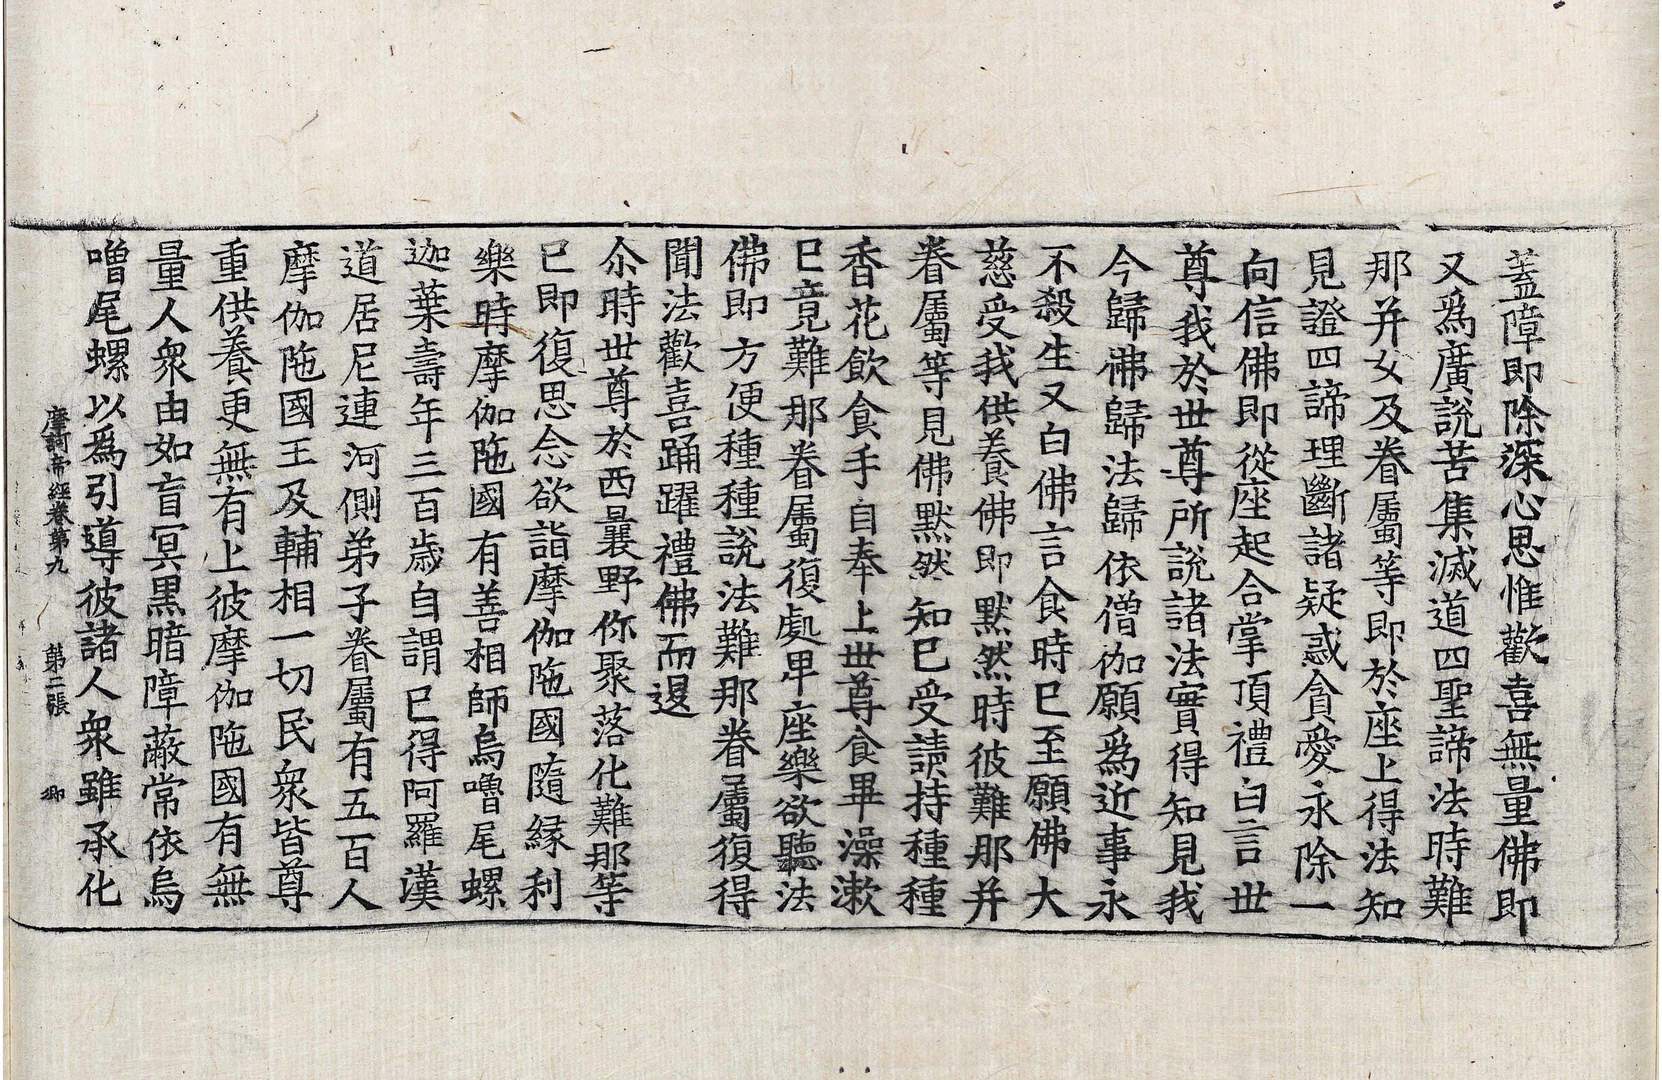 蓋障即除深心思惟歡喜無量佛即
又爲廣說苦集滅道四聖諦法時難
那并女及眷屬等即於座上得法知
見證四諦理斷諸疑惑貪愛永除一
向信佛即從座起合掌頂禮白言世
尊我於世尊所說諸法實得知見我
今歸佛歸法歸依僧伽願爲近事永
不殺生又白佛言食時已至願佛大
慈受我供養佛即默然時彼難那并
眷屬等見佛默然知已受請持種種
香花飲食手自奉上世尊食畢澡漱
已竟難那眷屬復處卑座樂欲聽法
佛即方便種種說法難那眷屬復得
聞法歡喜踊躍禮佛而退
尒時世尊於西曩野你聚落化難那等
已即復思念欲詣摩伽陁國隨緣利
樂時摩伽陁國有善相師烏嚕尾螺
迦葉壽年三百歲自謂已得阿羅漢
道居尼連河側弟子眷屬有五百人
摩伽陁國王及輔相一切民衆皆尊
重供養更無有上彼摩伽陁國有無
量人衆由如盲冥黑暗障蔽常依烏
嚕尾螺以爲引導彼諸人衆雖承化
摩訶帝經卷第九 第二張 卿